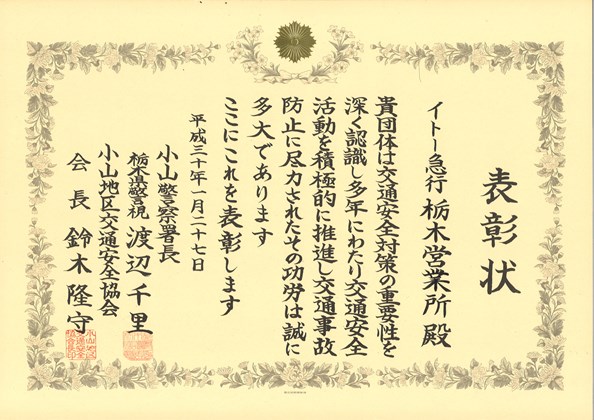 表彰状
イトー急行 栃木営業所 殿
貴団体は交通安全対策の重要性を
深く認識し多年にわたり交通安全
活動を積極的に推進し交通事故
防止に尽力されたその功労は誠に
多大であります
ここにこれを表彰します
平成三十年一月二十七日
小山警察署長
栃木県警視 渡辺千里
小山地区交通安全協会
会長 鈴木隆守